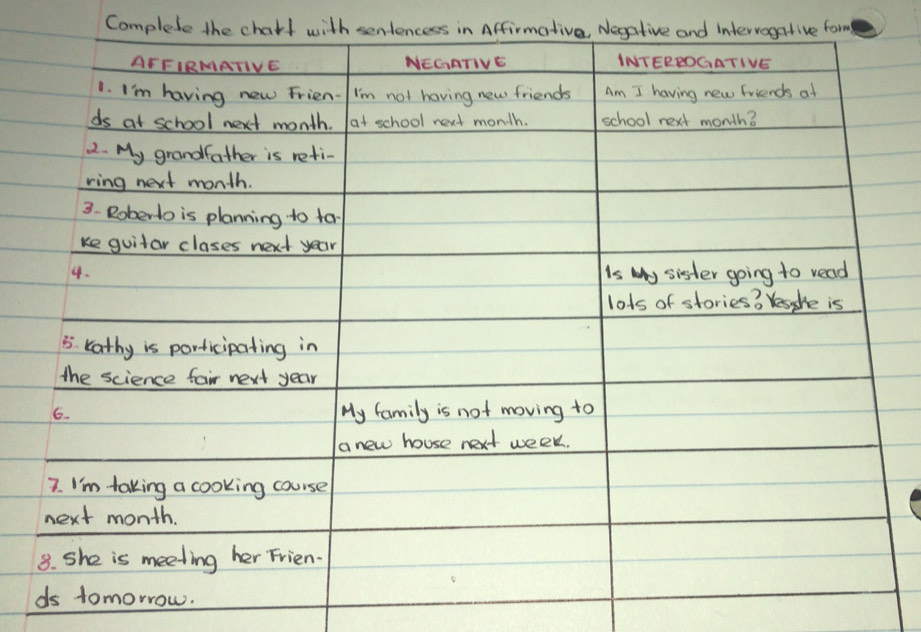 Complete the chart with sentencess in Affirmative, Negative and Interrogative form
AFFIRMATIVE
NEGATIVE
INTERROGATIVE
1. I'm having new Frien-
ds at school next month.
I'm not having new friends
at school next month.
Am I having new friends at
school next month?
2- My grandfather is reti-
ring next month.
3- Roberto is planning to ta-
ke guitar clases next year
4.
Is My sister going to read
lots of stories? Yes, she is
5. Kathy is participating in
the science fair next year
6.
My family is not moving to
a new house next week.
7. I'm taking a cooking course
next month.
8. She is meeting her Frien-
ds tomorrow.